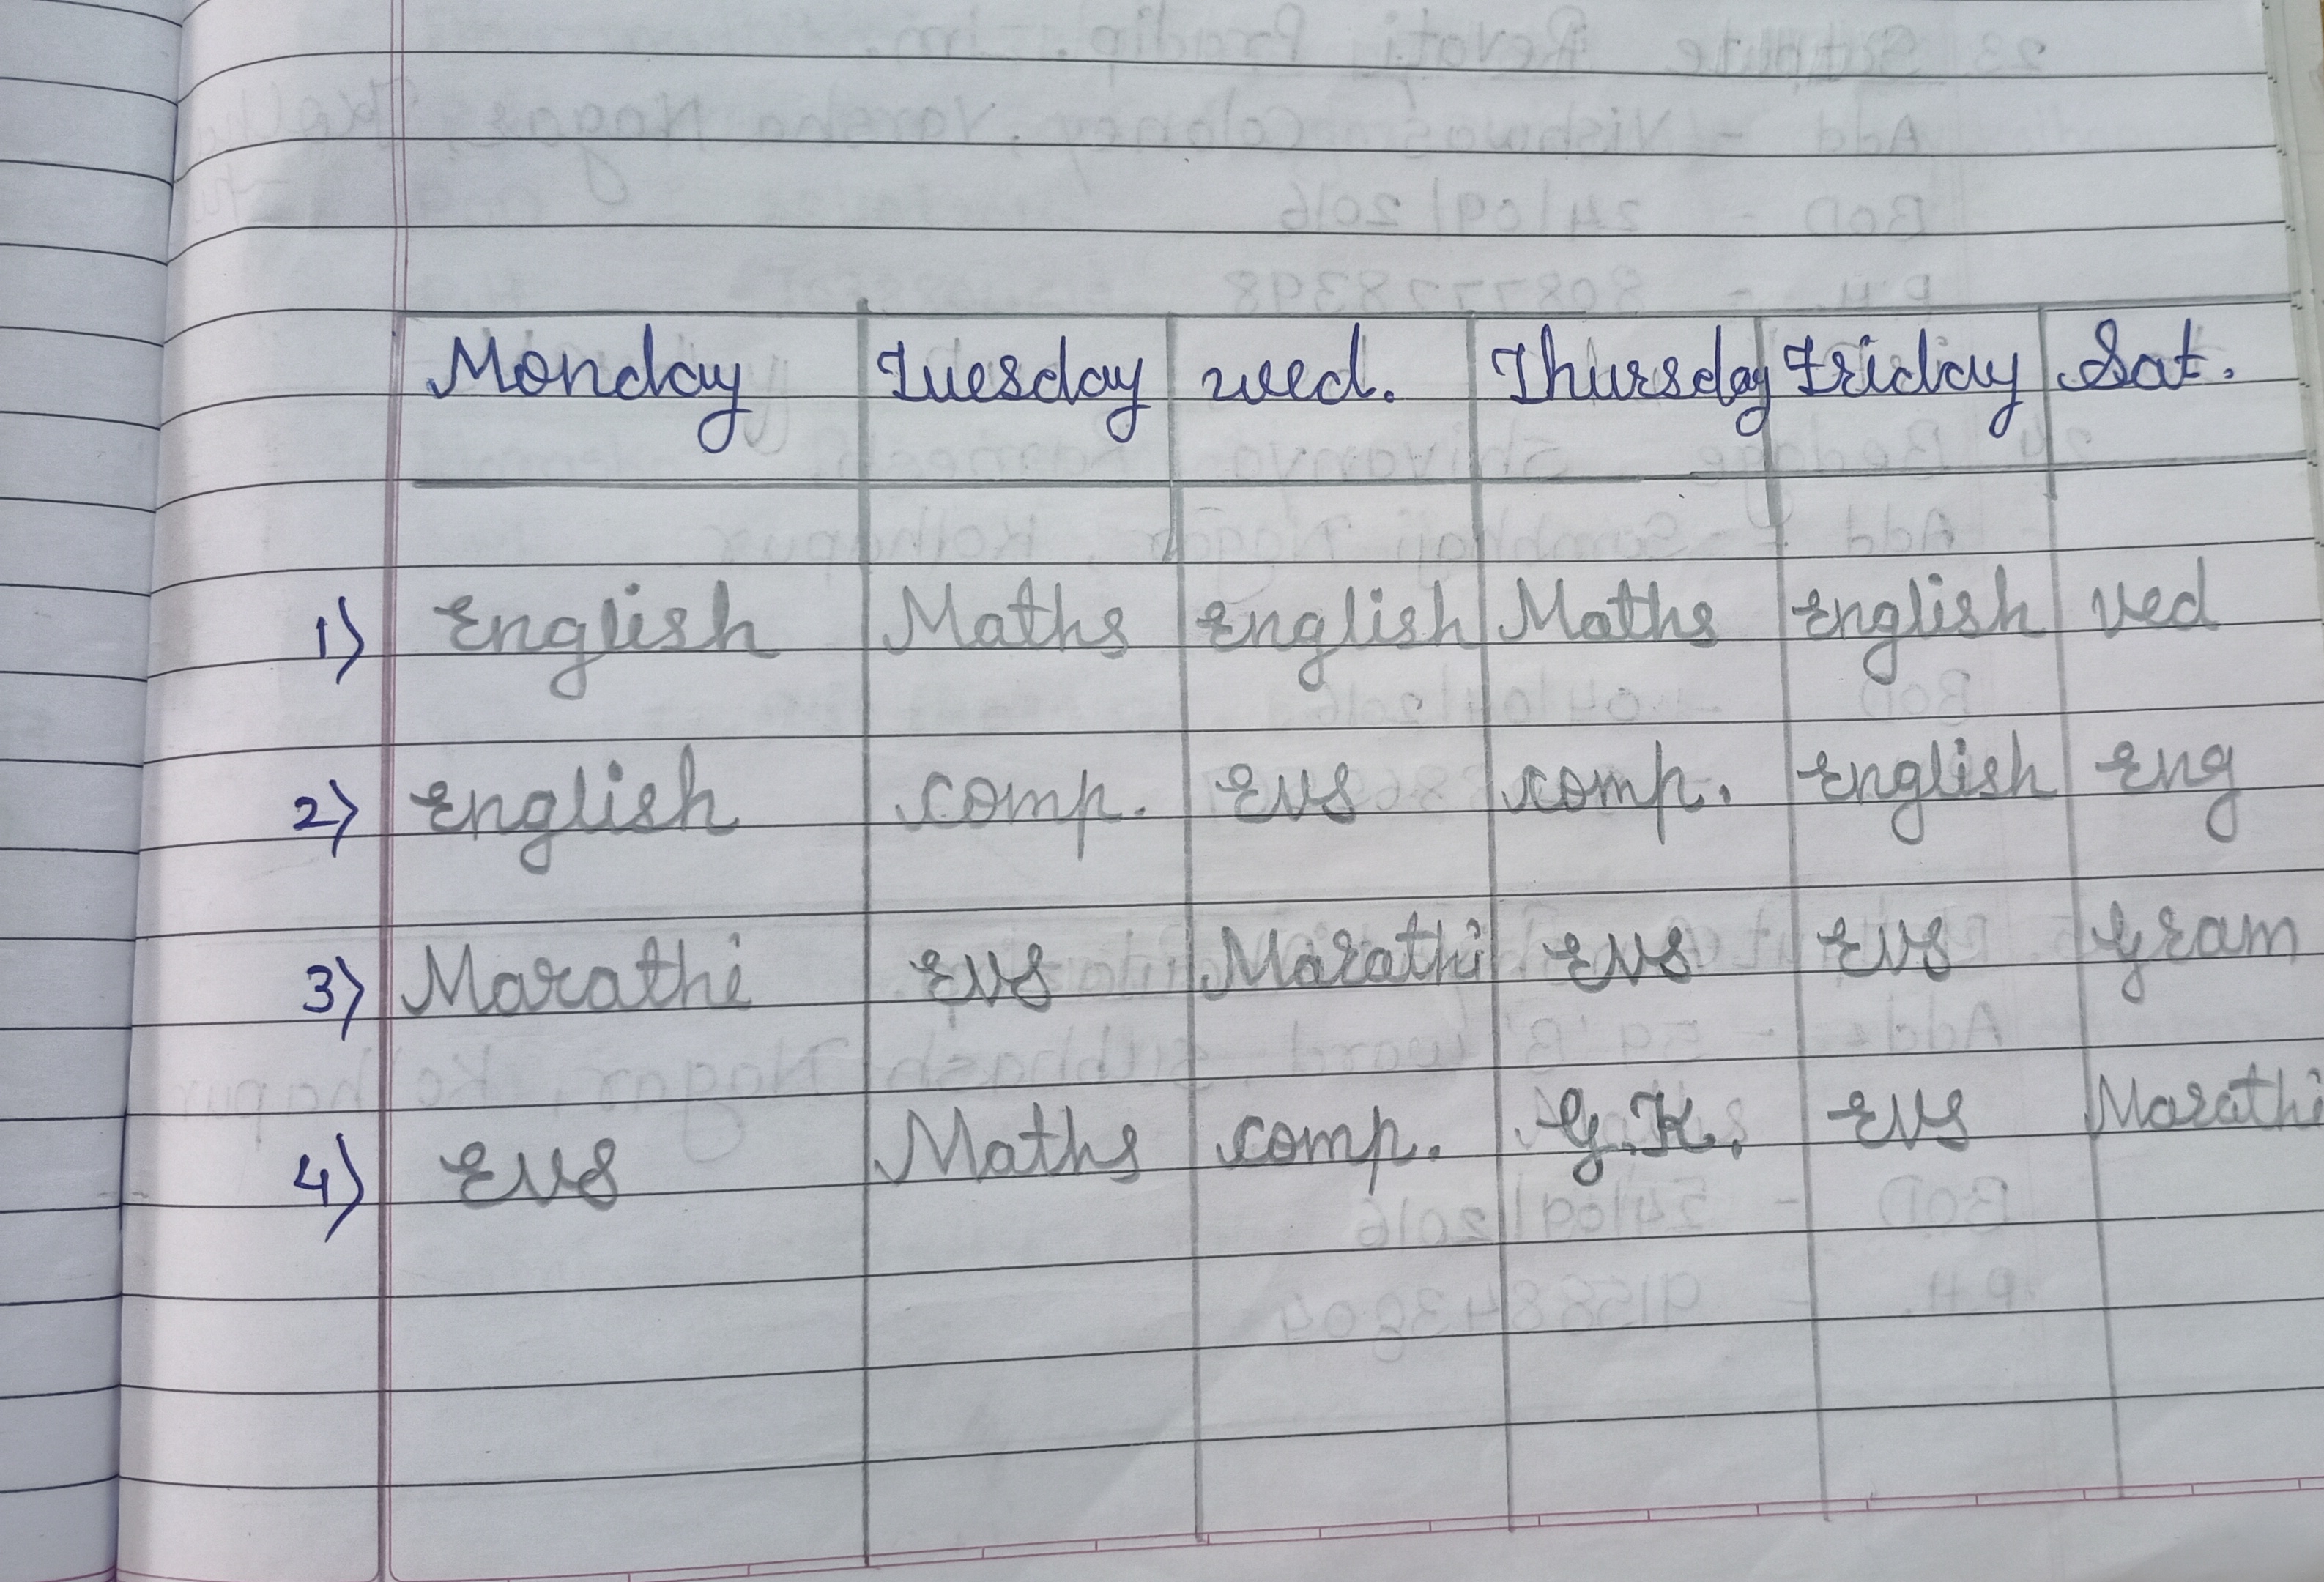 Monday Tuesday Wed. Thursday Friday Sat.
1) English Maths English Maths English Ved
2) English comp. EVS comp. English Eng
3) Marathi EVS Marathi EVS EVS Gram
4) EVS Maths comp. G.K. EVS Marathi